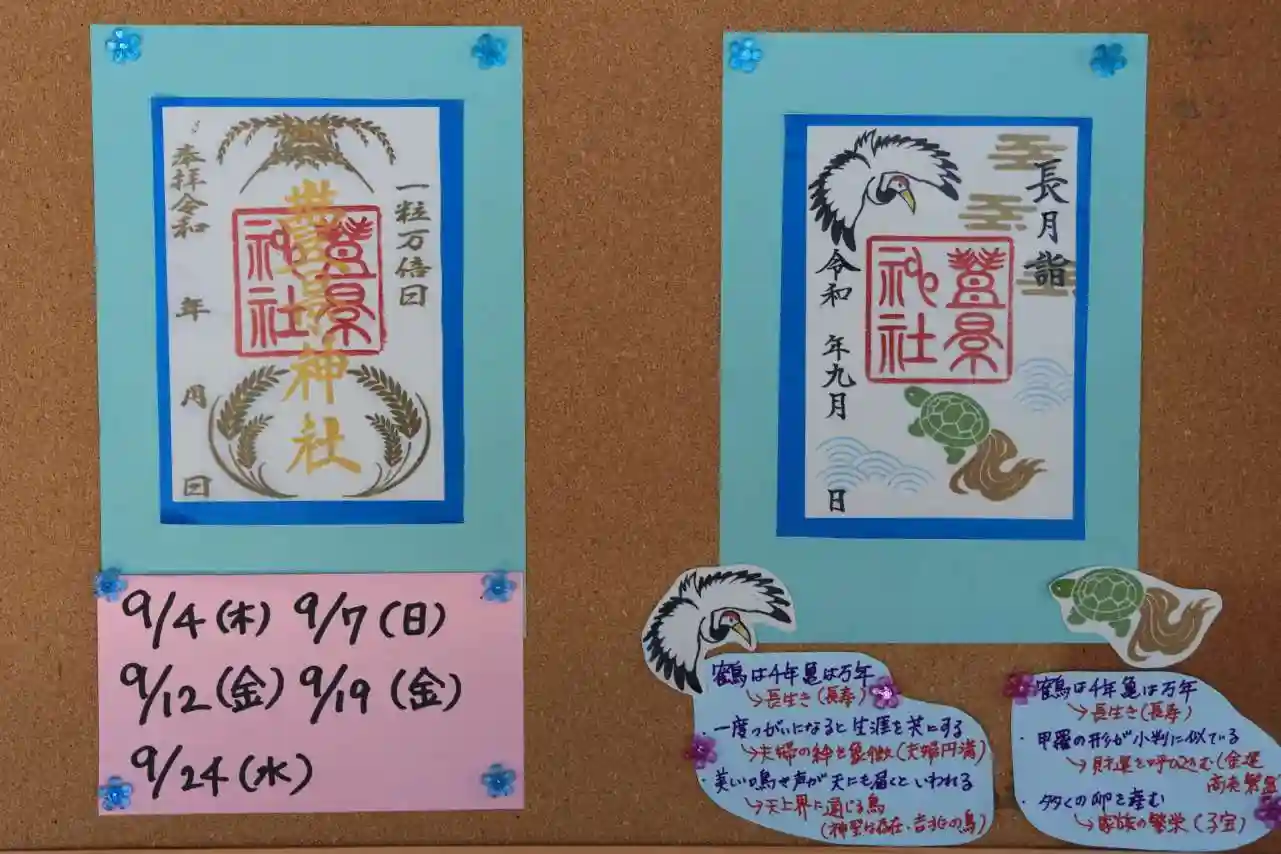 一粒万倍日
豐景神社
豐景
神社
奉拝令和 年 月 日
9/4(木) 9/7(日)
9/12(金) 9/19(金)
9/24(水)
長月詣
豐景
神社
令和 年九月 日
鶴は千年亀は万年
→長生き(長寿)
・一度つがいになると生涯を共にする
→夫婦の絆を象徴(夫婦円満)
・美しい鳴き声が天にも届くといわれる
→天上界に通じる鳥
(神聖な存在・吉兆の鳥)
鶴は千年亀は万年
→長生き(長寿)
・甲羅の形が小判に似ている
→財運を呼び込む(金運
商売繁盛
・多くの卵を産む
→家族の繁栄(子宝)